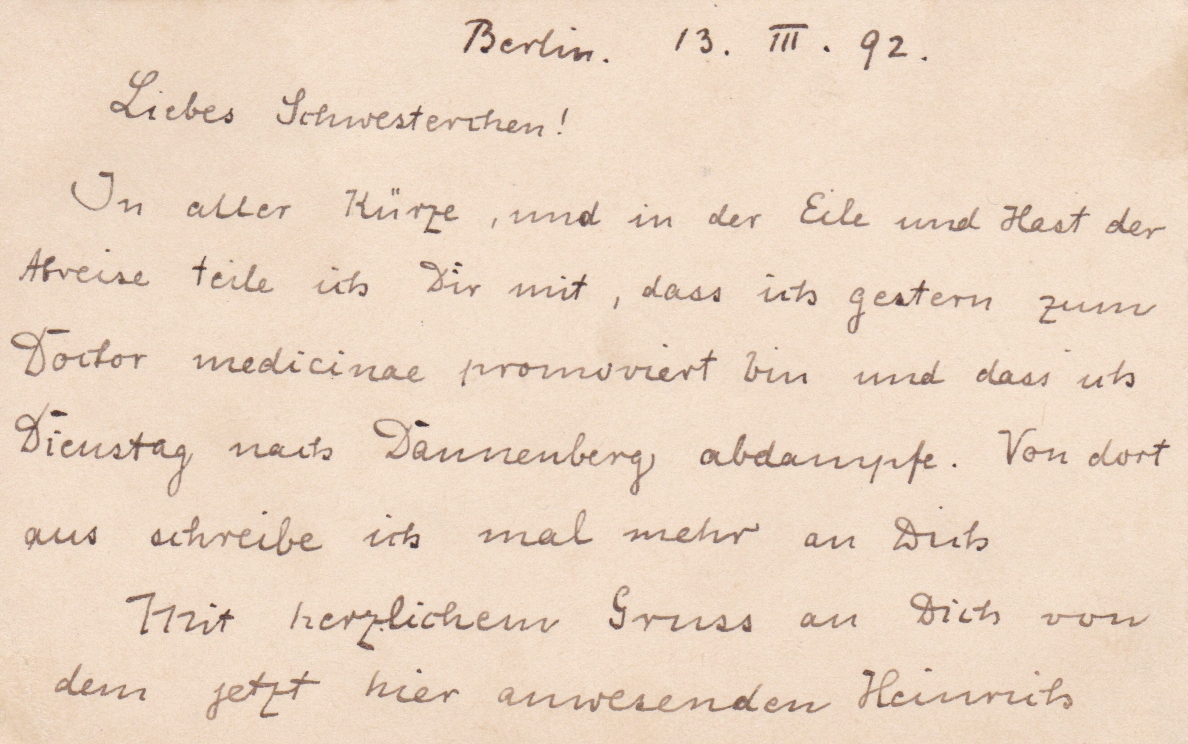 Berlin. 13. III. 92.
Liebes Schwesterchen!
In aller Kürze, und in der Eile und Hast der
Abreise teile ich Dir mit, dass ich gestern zum
Doctor medicinae promoviert bin und dass ich
Dienstag nach Dannenberg abdampfe. Von dort
aus schreibe ich mal mehr an Dich
Mit herzlichem Gruss an Dich von
dem jetzt hier anwesenden Heinrich